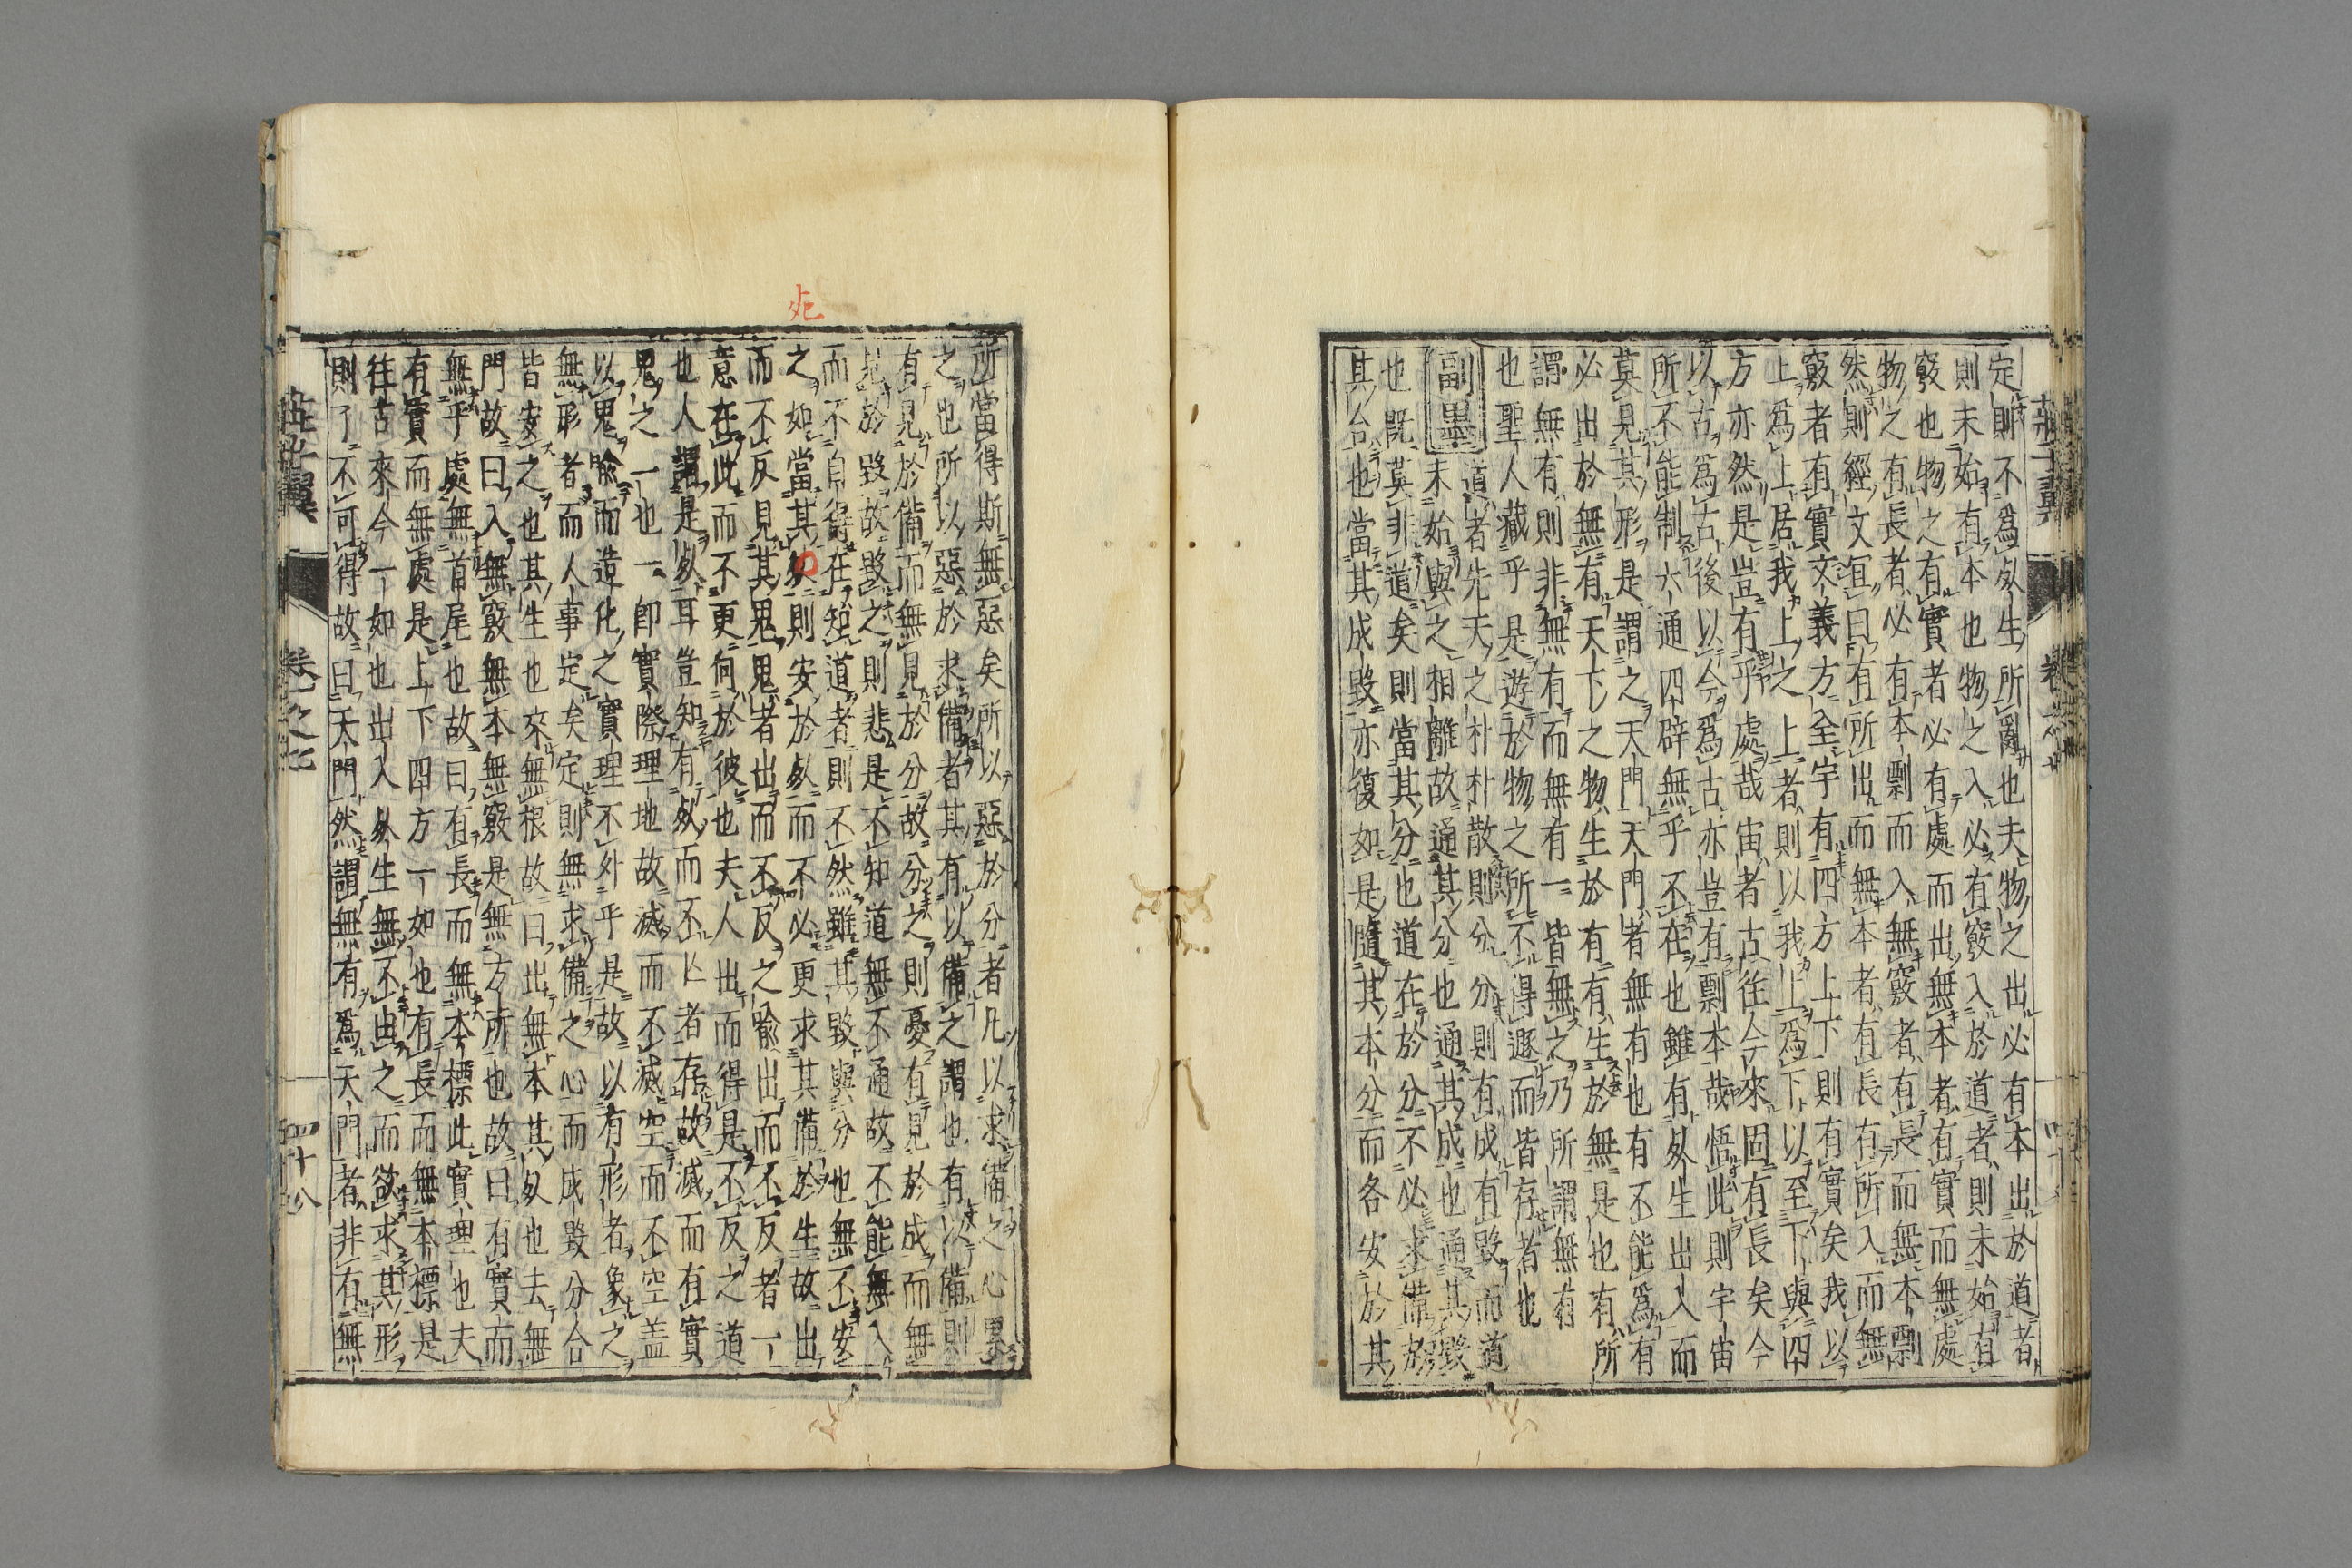 定則不爲死生所亂也夫物之出必有本出於道者
則未始有本也物之入必有竅入於道者則未始有
竅也物之有實者必有處而出無本者有實而無處
物之有長者必有本剽而入無竅者有長而無本剽
然則經文宜曰有所出而無本者有長有所入而無
竅者有實文義方全宇有四方上下則有實矣我以
上爲上居我上之上者則以我上爲下以至下與四
方亦然是豈有乎處哉宙者古往今來固有長矣今
以古爲古後以今爲古亦豈有剽本哉悟此則宇宙
所不能制六通四辟無乎不在也雖有死生出入而
莫見其形是謂之天門天門者無有也有不能爲有
必出於無有天下之物生於有有生於無是也有所
謂無有則非無有而無有一皆無之乃所謂無有
也聖人藏乎是遊於物之所不得遯而皆存者也
副墨
道者先天之朴朴散則分分則有成有毀而道
未始與之相離故通其分也通其成也通其毀
也既莫非道矣則當其分也道在於分不必求備於
其合也當其成毀亦復如是隨其本分而各安於其
所當得斯無惡矣所以惡於分者凡以求備之心累
之也所以惡於求備者其有以備之謂也有以備則
有見於備而無見於分故分之則憂有見於成而無
見於毀故毀之則悲是不知道無不通故不能無入
而不自得在知道者則不然雖其毀與分也無不安
之如當其死則安於死而不必更求其備於生故出
而不反見其鬼鬼者出而不反之喻出而不反者一
意在此而不更向於彼也夫人出而得是不反之道
也人謂是死耳豈知有死而不亡者存故滅而有實
鬼之一也一即實際理地故滅而不滅空而不空盖
以鬼喻而造化之實理不外乎是故以有形者象之
無形者而人事定矣定則無求備之心而成毀分合
皆安之也其生也來無根故曰出無本其死也去無
門故曰入無竅無本無竅是無方所也故曰有實而
無乎處無首尾也故曰有長而無本標此實理也夫
有實而無處是上下四方一如也有長而無本標是
往古來今一如也出入死生無不由之而欲求其形
則了不可得故曰天門然謂無有爲天門者非有無
莊子翼
卷之七
四十八
死